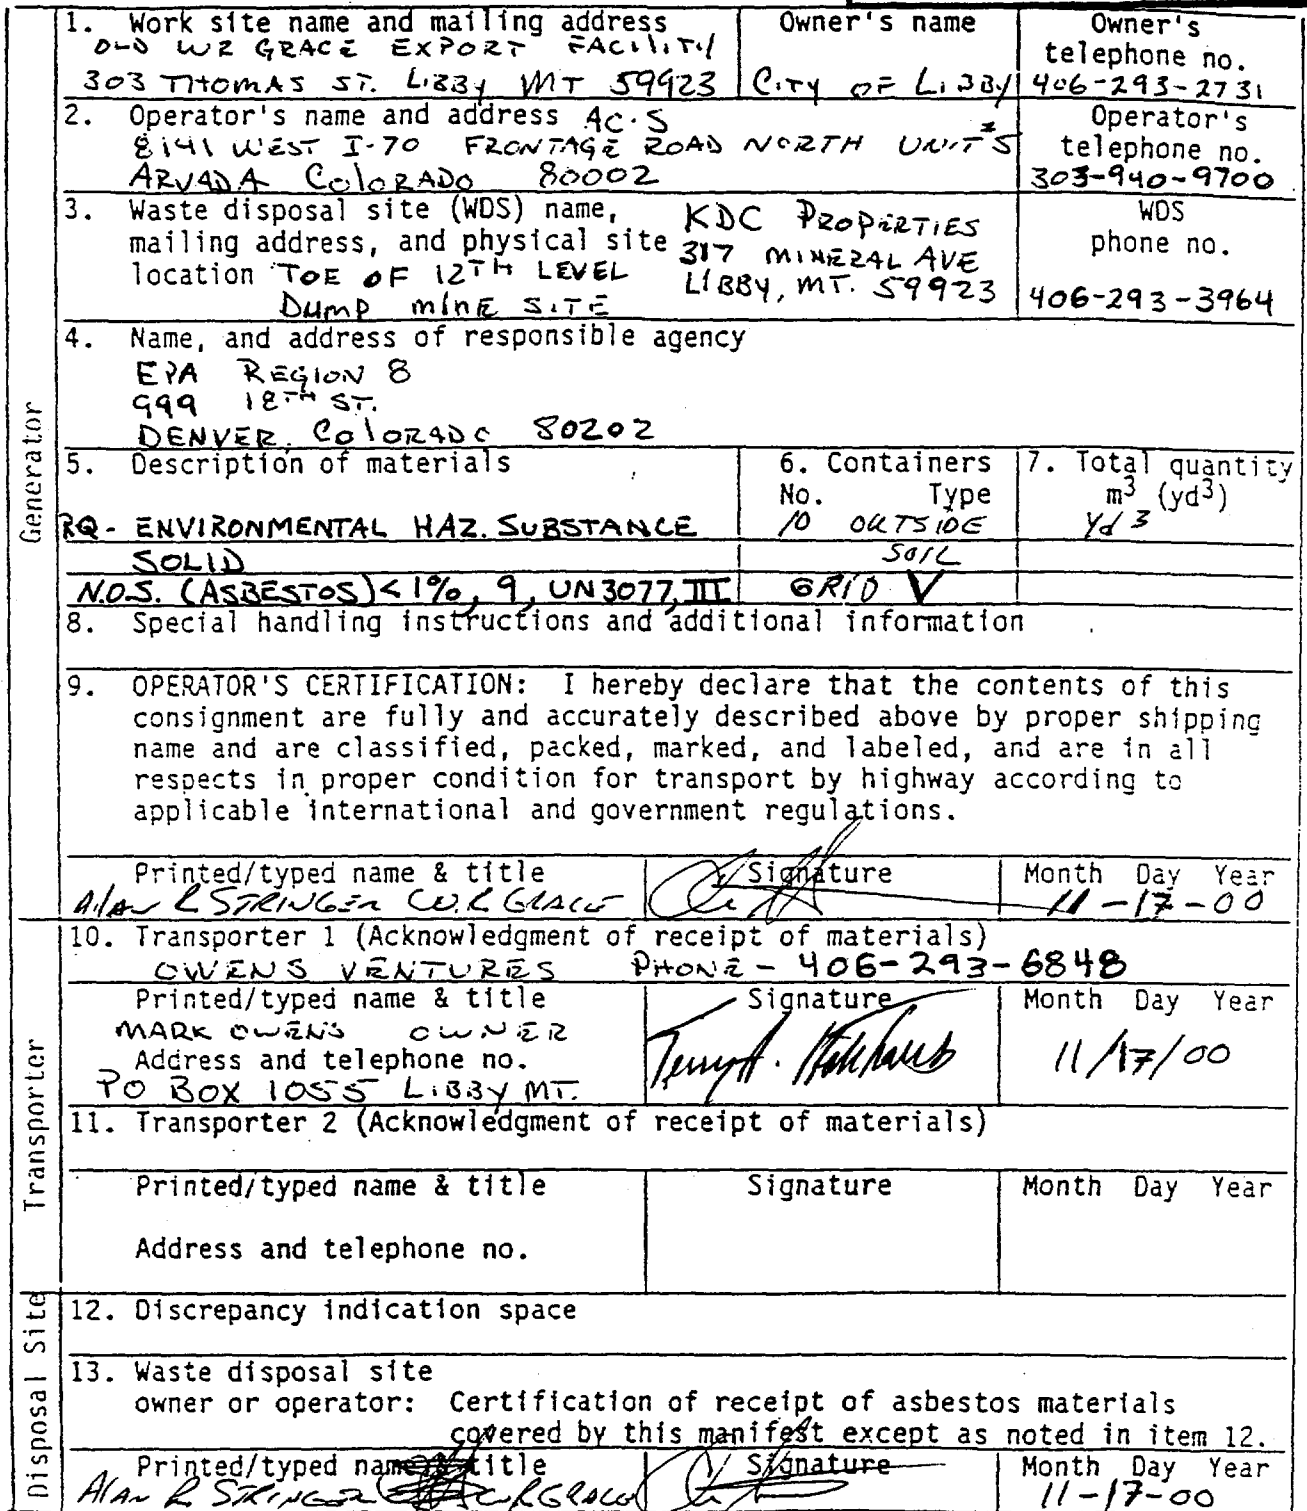 1. Work site name and mailing address
OLD WR GRACE EXPORT FACILITY
303 THOMAS ST. LIBBY MT 59923
Owner's name
CITY OF LIBBY
Owner's
telephone no.
406-293-2731
2. Operator's name and address AC·S
8141 WEST I-70 FRONTAGE ROAD NORTH UNIT #5
ARVADA COLORADO 80002
Operator's
telephone no.
303-940-9700
3. Waste disposal site (WDS) name,
mailing address, and physical site
location TOE OF 12TH LEVEL
DUMP MINE SITE
KDC PROPERTIES
317 MINERAL AVE
LIBBY, MT. 59923
WDS
phone no.
406-293-3964
4. Name, and address of responsible agency
EPA REGION 8
999 18TH ST.
DENVER, COLORADO 80202
Generator
5. Description of materials
RQ - ENVIRONMENTAL HAZ. SUBSTANCE
SOLID
N.O.S. (ASBESTOS) < 1%, 9, UN3077, III
6. Containers
No. Type
10 OUTSIDE
SOIL
GRID V
7. Total quantity
m3 (yd3)
yd3
8. Special handling instructions and additional information
9. OPERATOR'S CERTIFICATION: I hereby declare that the contents of this
consignment are fully and accurately described above by proper shipping
name and are classified, packed, marked, and labeled, and are in all
respects in proper condition for transport by highway according to
applicable international and government regulations.
Printed/typed name & title
Alan R STRINGER W.R GRACE
Signature
Month Day Year
11-17-00
Transporter
10. Transporter 1 (Acknowledgment of receipt of materials)
OWENS VENTURES PHONE - 406-293-6848
Printed/typed name & title
MARK OWENS OWNER
Address and telephone no.
PO BOX 1055 LIBBY MT.
Signature
Month Day Year
11/17/00
11. Transporter 2 (Acknowledgment of receipt of materials)
Printed/typed name & title
Signature
Month Day Year
Address and telephone no.
Disposal Site
12. Discrepancy indication space
13. Waste disposal site
owner or operator: Certification of receipt of asbestos materials
covered by this manifest except as noted in item 12.
Printed/typed name & title
Alan R STRINGER W R GRACE
Signature
Month Day Year
11-17-00